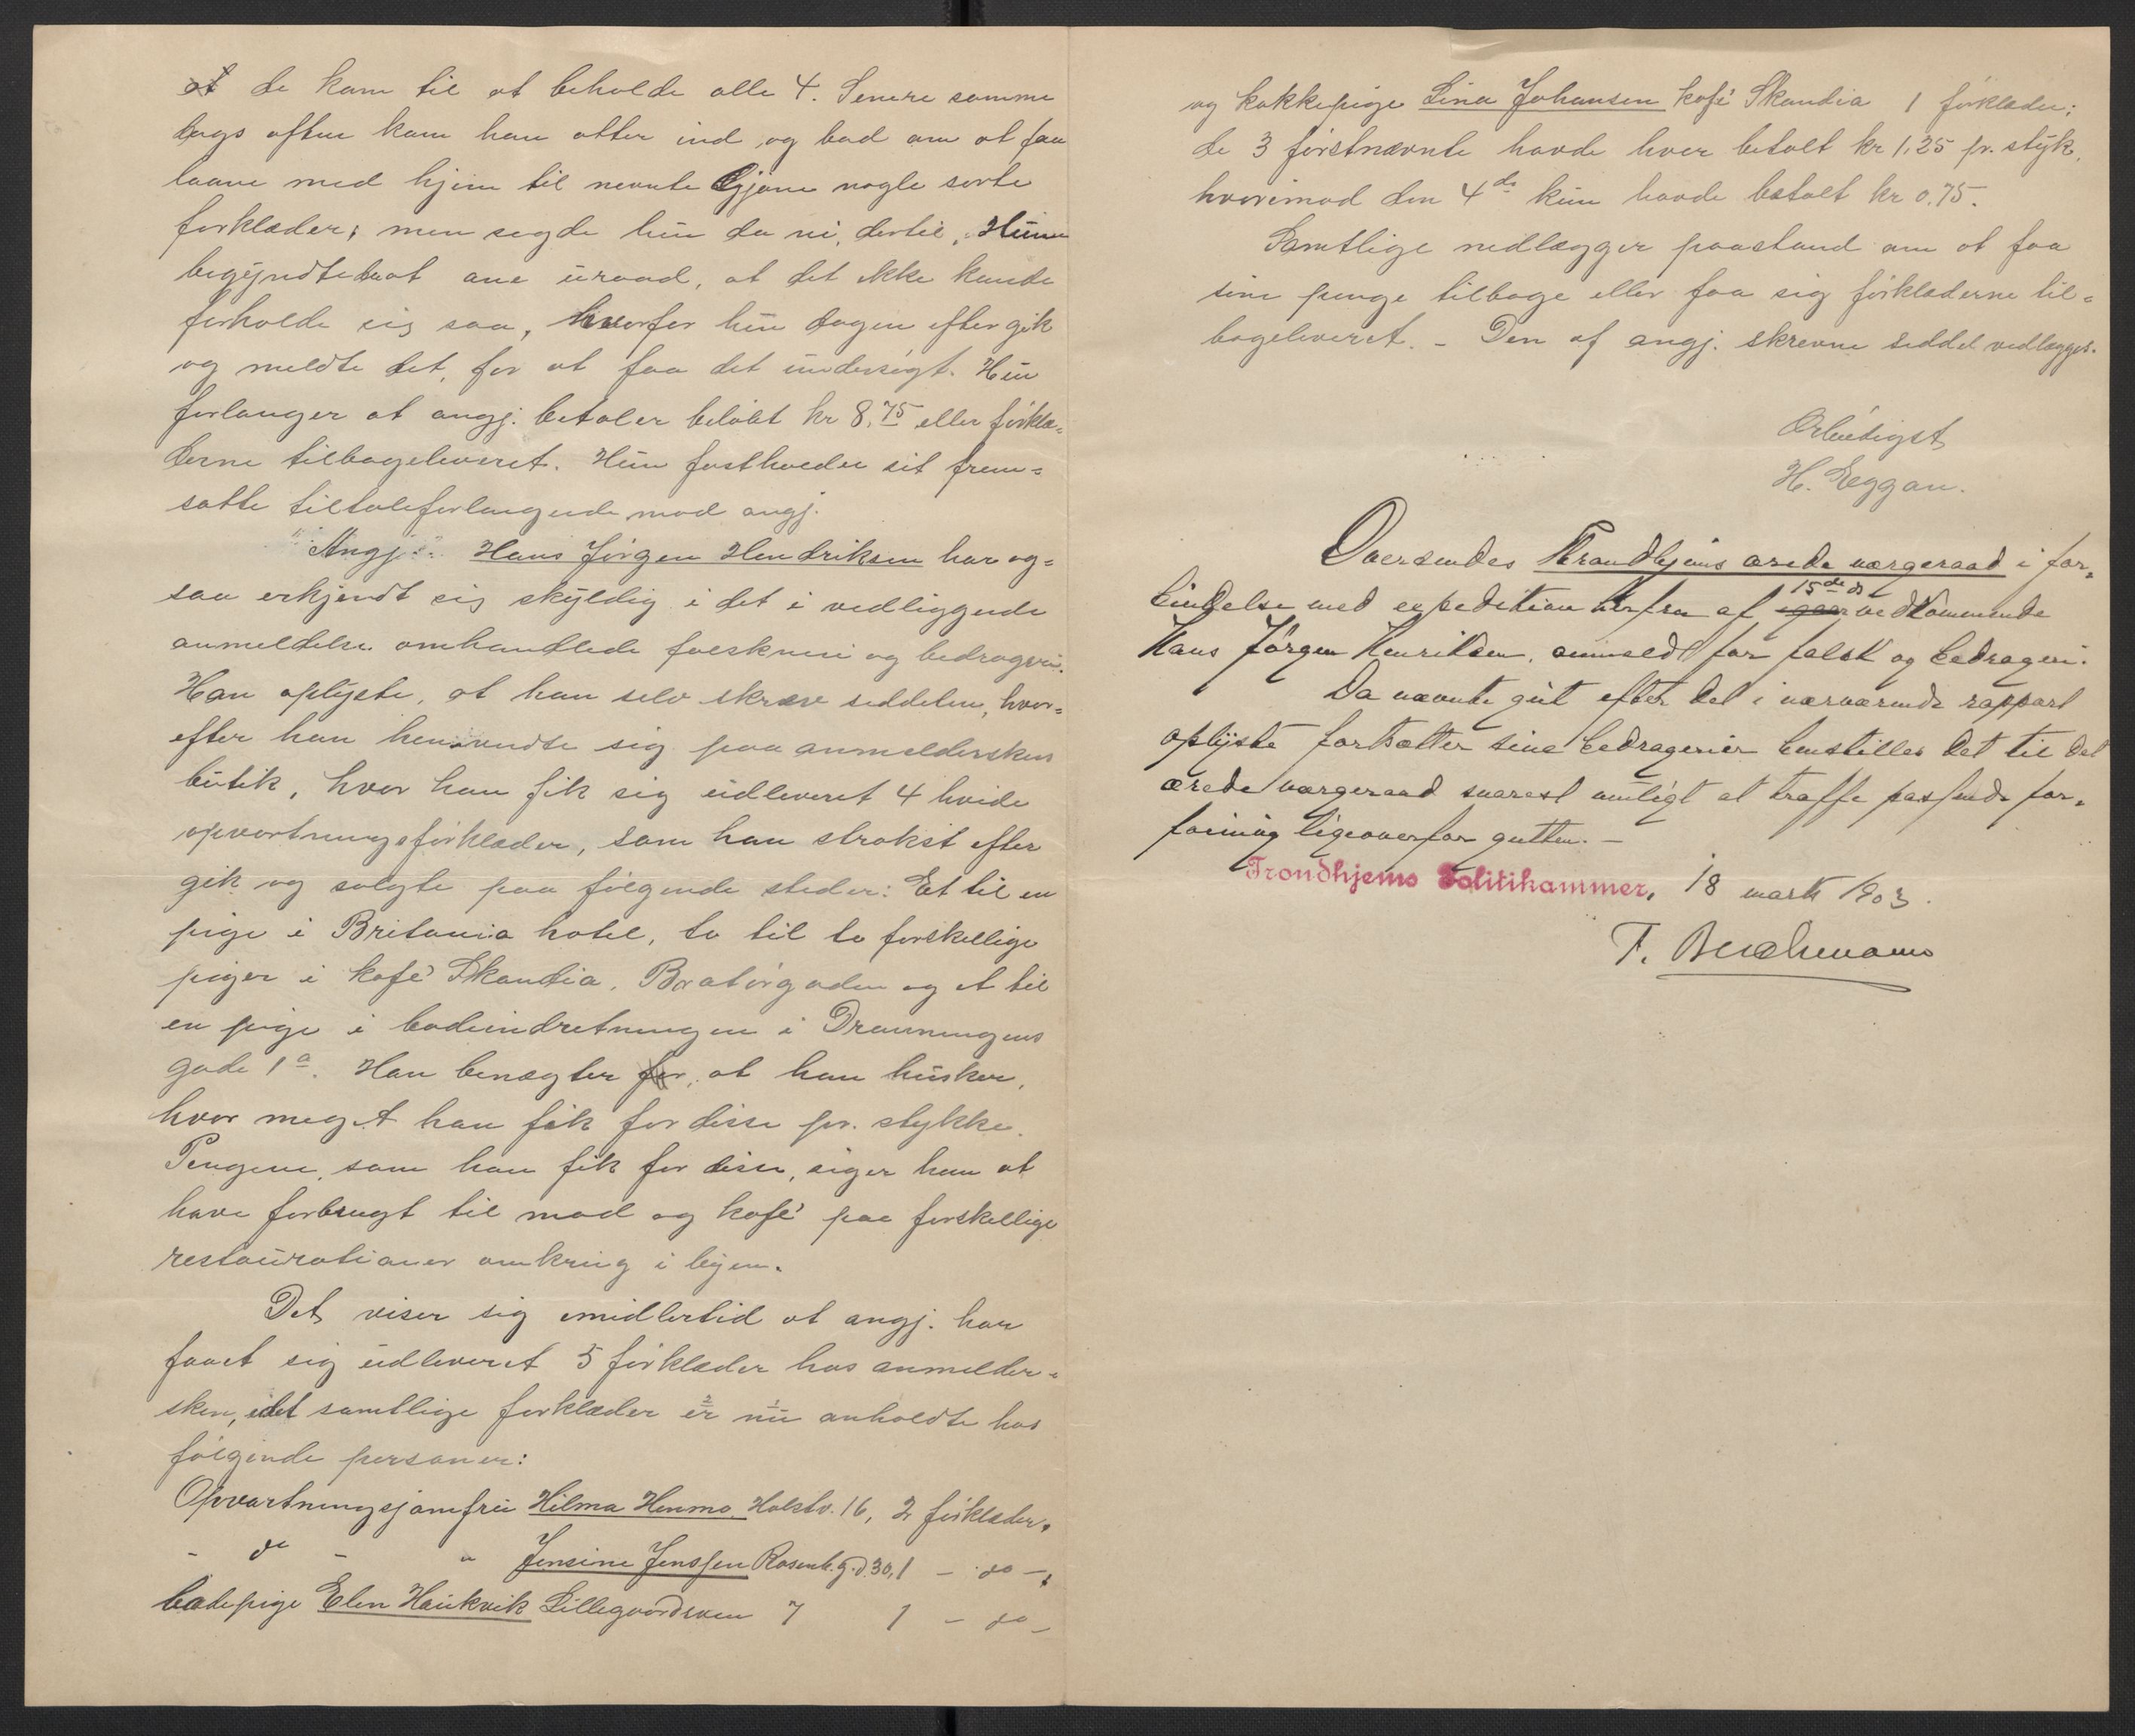 at de kom til at beholde alle 4. Senere samme
dags aften kom han atter ind, og bad om at faa
laane med hjem til nevnte Gjøne nogle sorte
forklæder; men sagde hun da nei, dertil. Hun
begyndte at ane uraad, at det ikke kunde
forholde sig saa, hvorfor hun dagen efter gik
og meldte det, for at faa det undersøgt. Hun
forlanger at angj. betaler beløbt kr 8,75 eller forklæ=
derne tilbageleveret. Hun fastholder sit frem=
satte tiltaleforlangende mod angj.
Angj. Hans Jørgen Hendriksen har og=
saa erkjendt sig skyldig i det i vedliggende
anmeldelse omhandlede falskneri og bedrageri.
Han oplyste, at han selv skrev seddelen, hvor=
efter han henvendte sig paa anmelderskens
butik, hvor han fik sig udleveret 4 hvide
opvartningsforklæder, som han strakst efter
gik og solgte paa følgende steder: Et til en
pige i Britania hotel, to til to forskellige
piger i kafé Skandia, Bratørgaden og et til
en pige i badeindretningen i Dronningens
gade 1a. Han benægter for, at han husker,
hvor meget han fik for disse pr. stykke.
Pengene, som han fik for disse, siger han at
have forbrugt til mad og kafé paa forskellige
restaurationer omkring i byen.
Det viser sig imidlertid at angj. har
faaet sig udleveret 5 forklæder hos anmelder=
sken, idet samtlige forklæder er nu anholdte hos
følgende personer:
Opvartningsjomfru Hilma Henmo Holstv. 16, 2 forklæder,
- do - " Jensine Jenssen Rosenb.g.d. 30, 1 - do -,
badepige Elen Haukvik Lillegaardsveien 7 1 - do -
og kokkepige Lina Johansen kafé Skandia 1 forklæder;
de 3 førstnævnte havde hver betalt kr 1,25 pr. styk,
hvorimod den 4de kun havde betalt kr 0.75.
Samtlige nedlægger paastand om at faa
sine penge tilbage eller faa sig forklæderne til=
bageleveret. - Den af angj. skrevne seddel vedlægges.
Ærbødigst
H. Eggan.
Oversendes Trondhjems ærede værgeraad i for=
bindelse med expedition herfra af igaar 15de ds vedkommende
Hans Jørgen Henriksen, anmeldt for falsk og bedrageri.
Da nævnte gut efter det i nærværende rapport
oplyste fortsætter sine bedragerier henstilles det til det
ærede værgeraad snarest muligt at træffe passende for=
føining ligeoverfor gutten. -
Trondhjems Politikammer, 18 marts 1903.